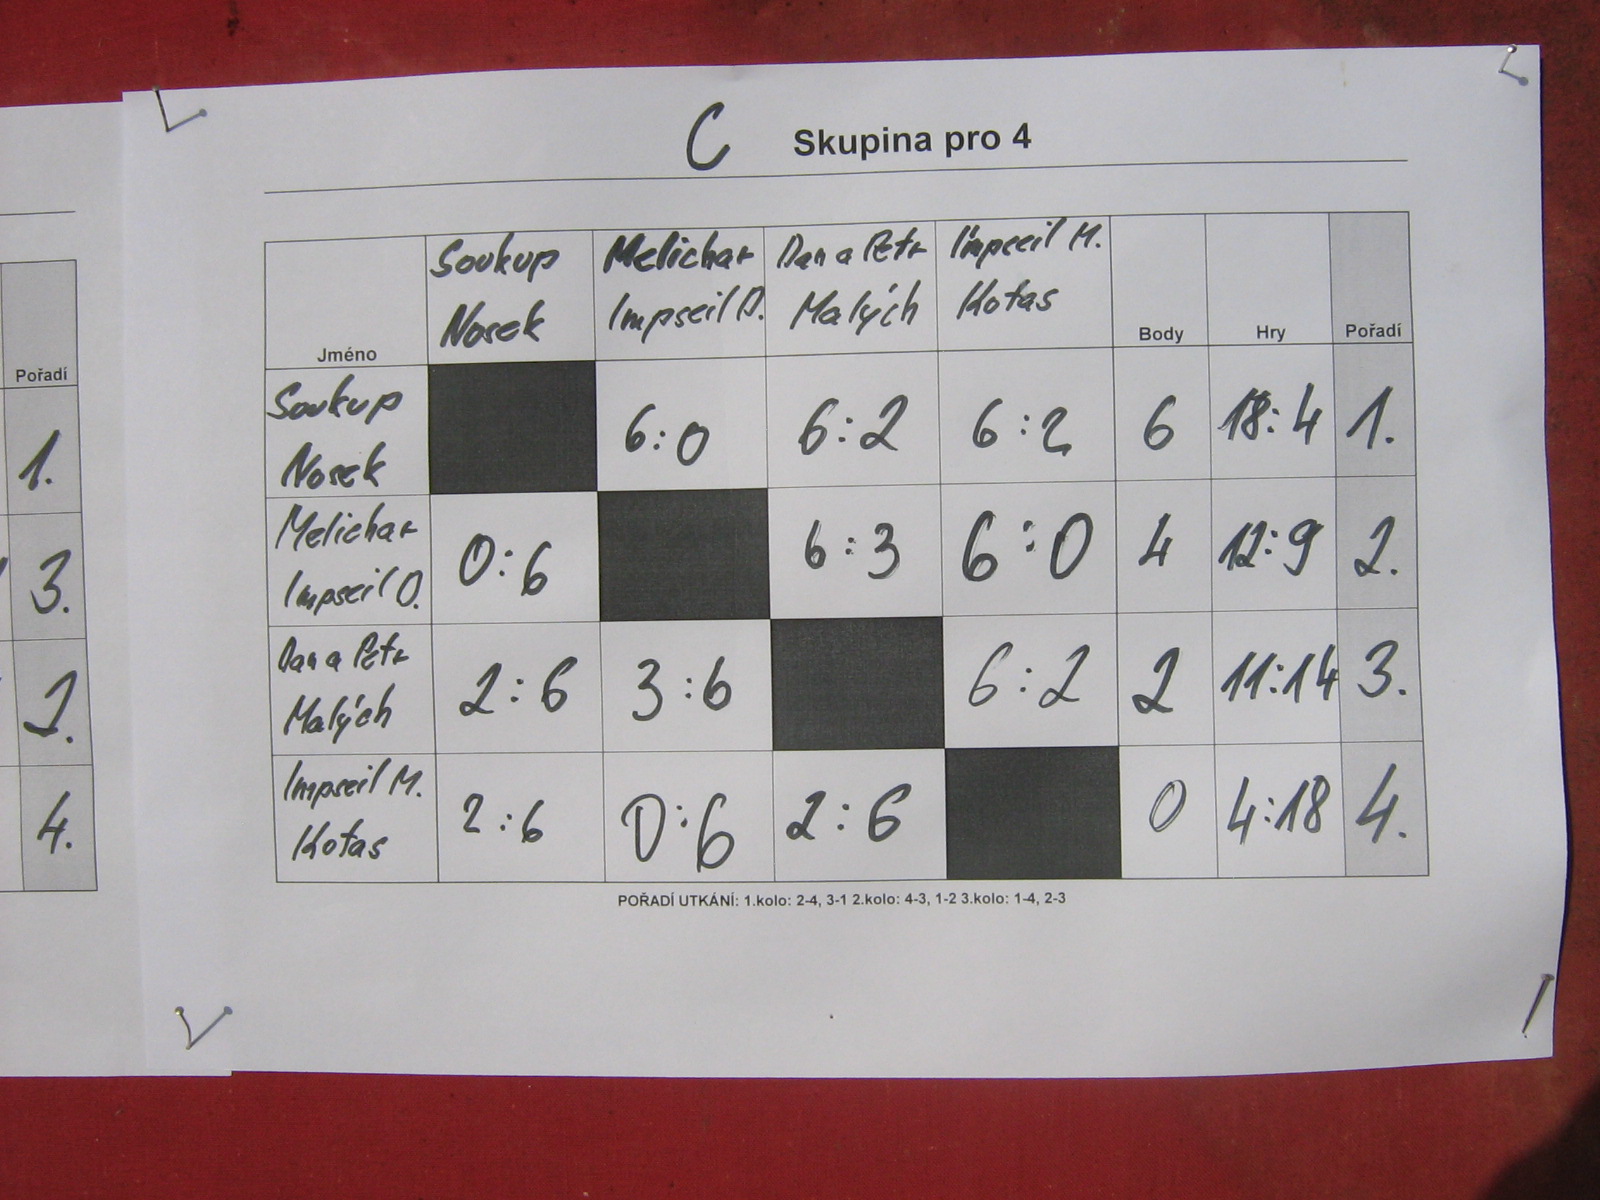 C Skupina pro 4
Soukup Melichar Dan a Petr Impseil M.
Nosek Impseil O. Malých Kotas
Jméno Body Hry Pořadí
Soukup
Nosek
6:0 6:2 6:2 6 18:4 1.
Melichar
Impseil O.
0:6 6:3 6:0 4 12:9 2.
Dan a Petr
Malých
2:6 3:6 6:2 2 11:14 3.
Impseil M.
Kotas
2:6 0:6 2:6 0 4:18 4.
POŘADÍ UTKÁNÍ: 1.kolo: 2-4, 3-1 2.kolo: 4-3, 1-2 3.kolo: 1-4, 2-3
Pořadí
1.
3.
2.
4.